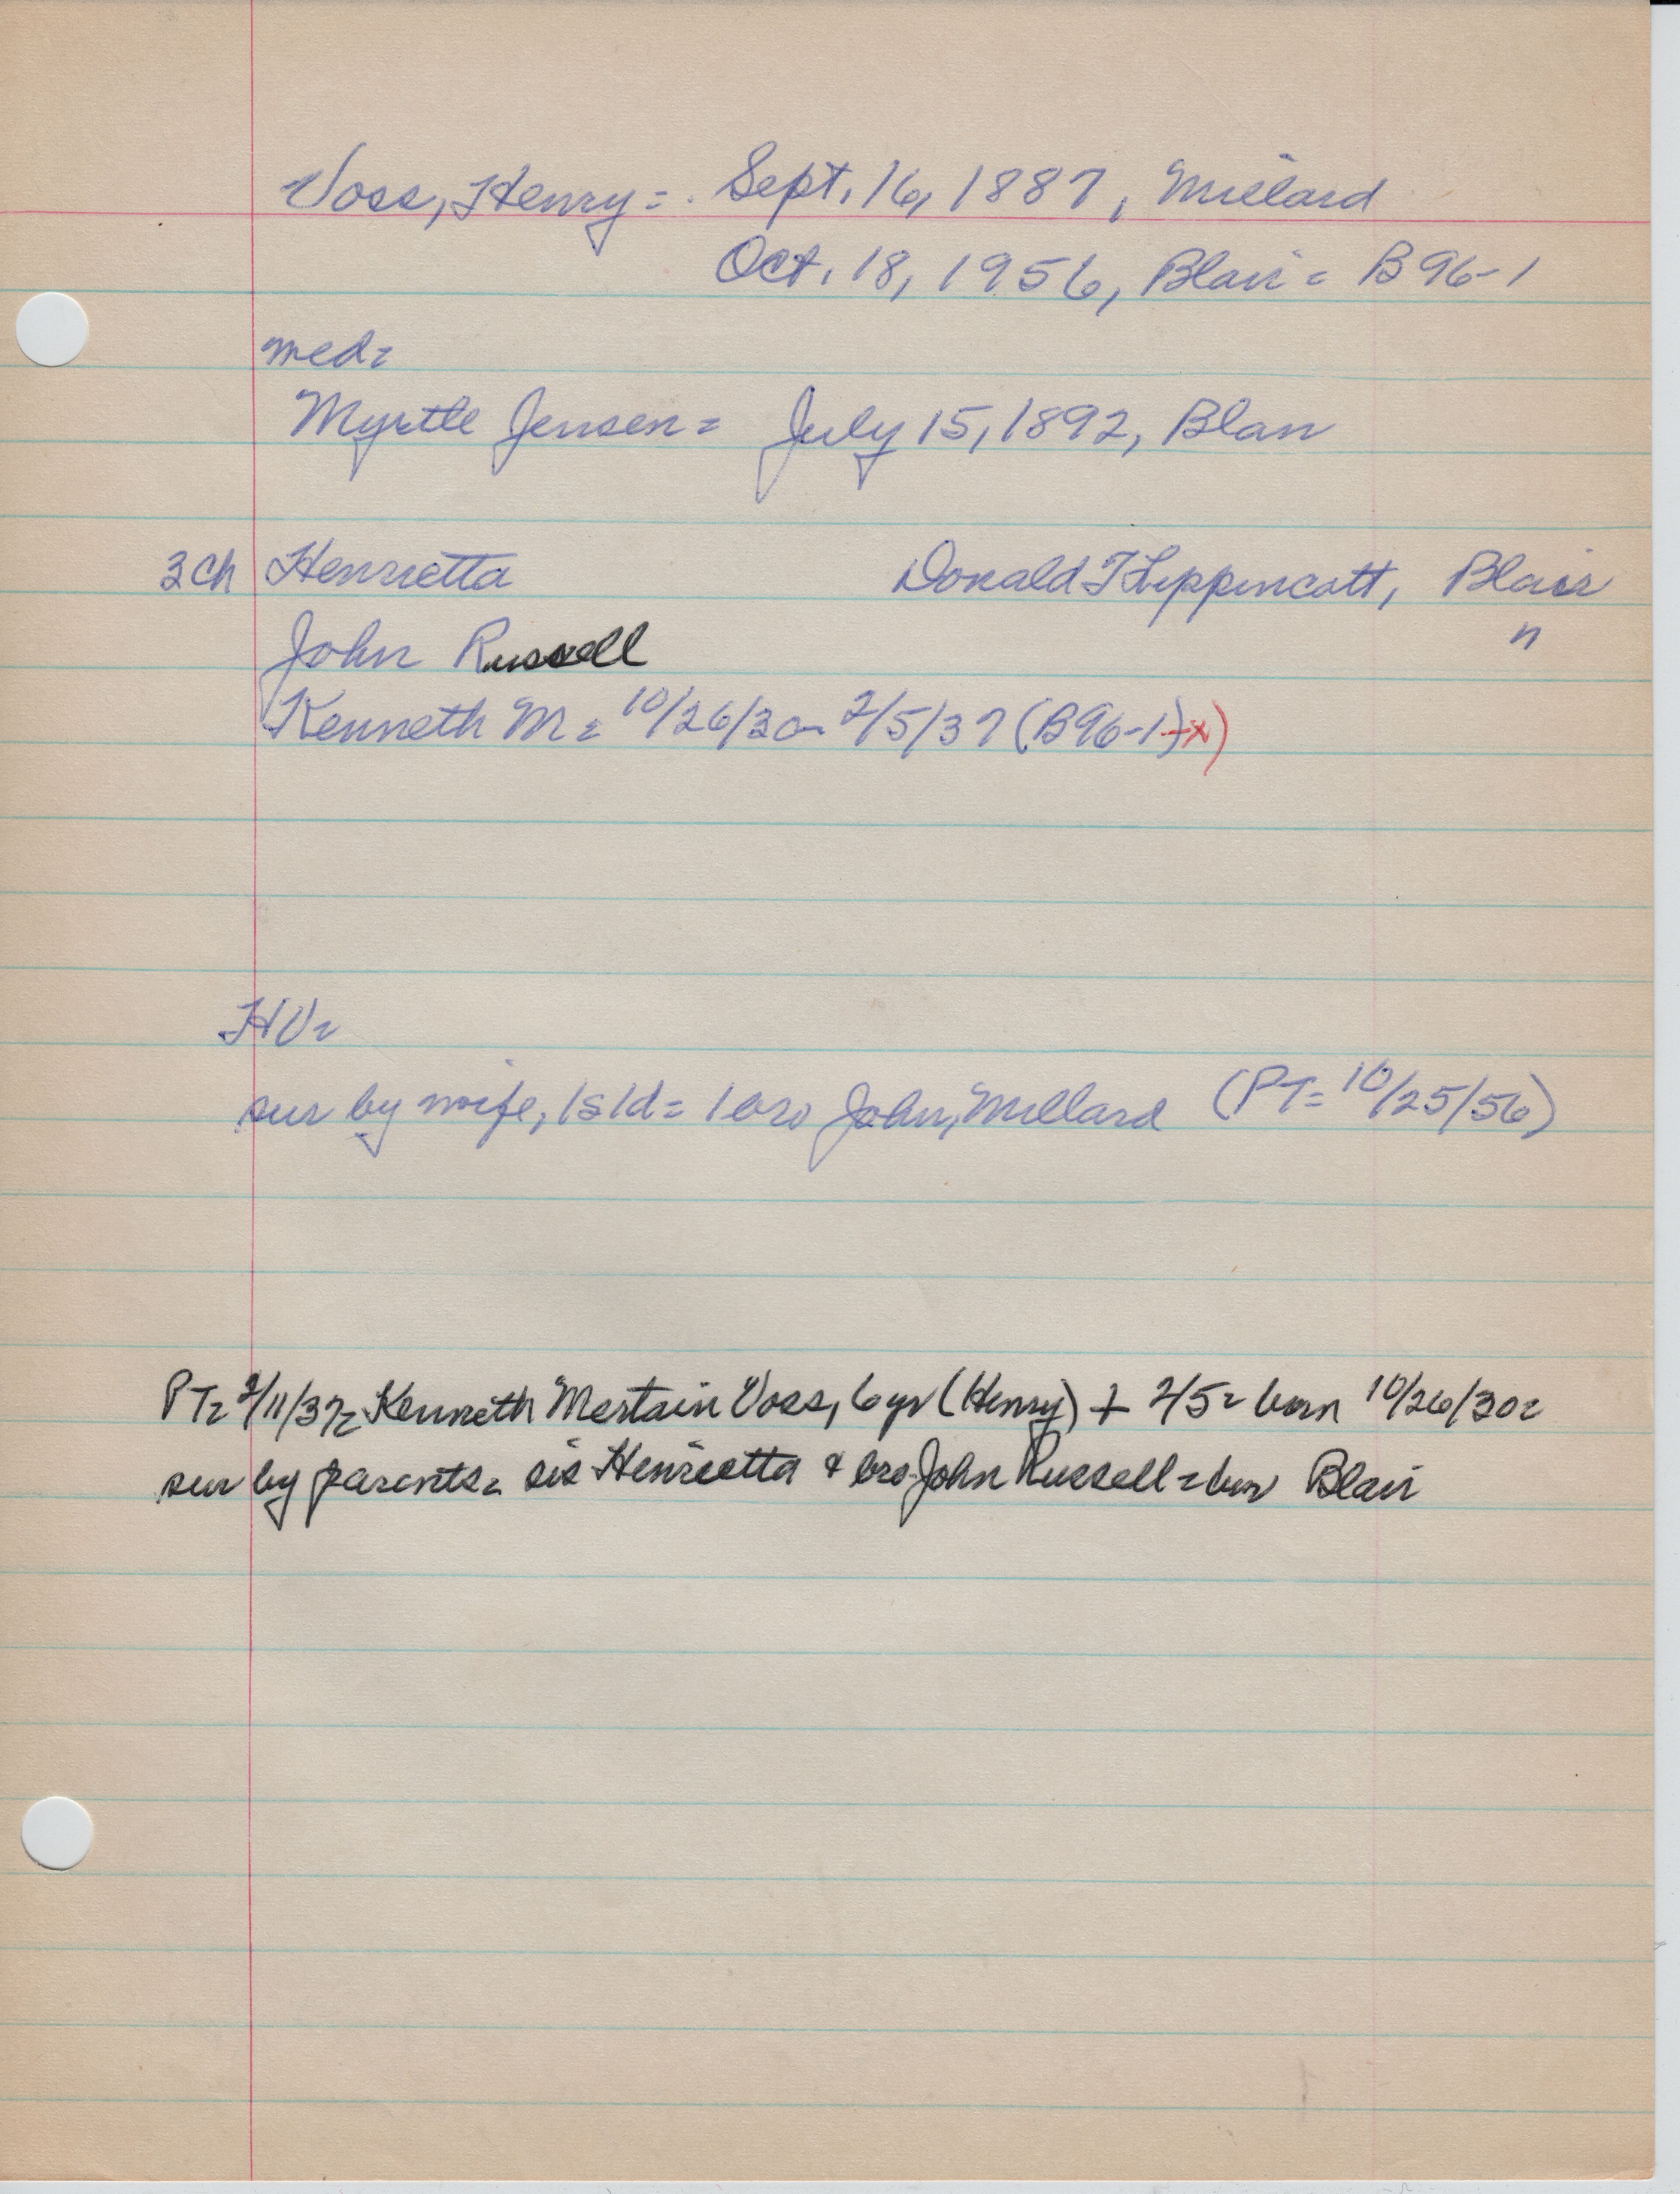 Voss, Henry = Sept. 16, 1887, Millard
Oct. 18, 1956, Blair = B96-1
med=
Myrtle Jensen = July 15, 1892, Blair
3 ch Henrietta Donald T Lippincott, Blair
John Russell "
Kenneth M = 10/26/30- 2/5/37 (B96-1)-x)
HV=
sur by wife, 1s 1d = 1 bro John, Millard (PT= 10/25/56)
PT= 2/11/37= Kenneth Mertain Voss, 6 yr (Henry) + 2/5= born 10/26/30=
sur by parents= sis Henrietta & bro John Russell = bur Blair